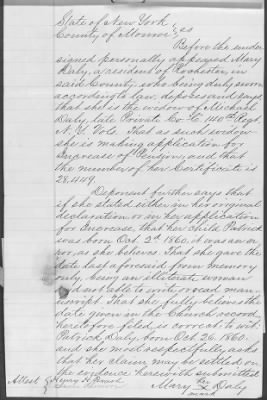 State of New York
County of Monroe } ss
Before the under
signed personally appeared Mary
Daly, a resident of Rochester, in
said County, who being duly sworn
according to law, deposes and says
that she is the widow of Michael
Daly, late Private Co. 140th Regt.
N. Y. Vols. That as such widow
she is making application for
Increase of Pension, and that
the number of her Certificate is
28,449.
Deponent further says that
if she stated either in her original
declaration or in her application
for Increase, that her child Patrick
was born Oct. 2d 1860, it was an er
ror, as she believes. That she gave the
date last aforesaid from memory
only, being an illiterate woman
and not able to write or read man-
uscript. That she fully believes the
date given in the Church record
heretofore filed is correct, to wit:
Patrick Daly, born Oct. 26, 1860.
and she most respectfully asks
that her claim may be settled on
the evidence herewith submitted
Attest Henry
Mary her mark Daly